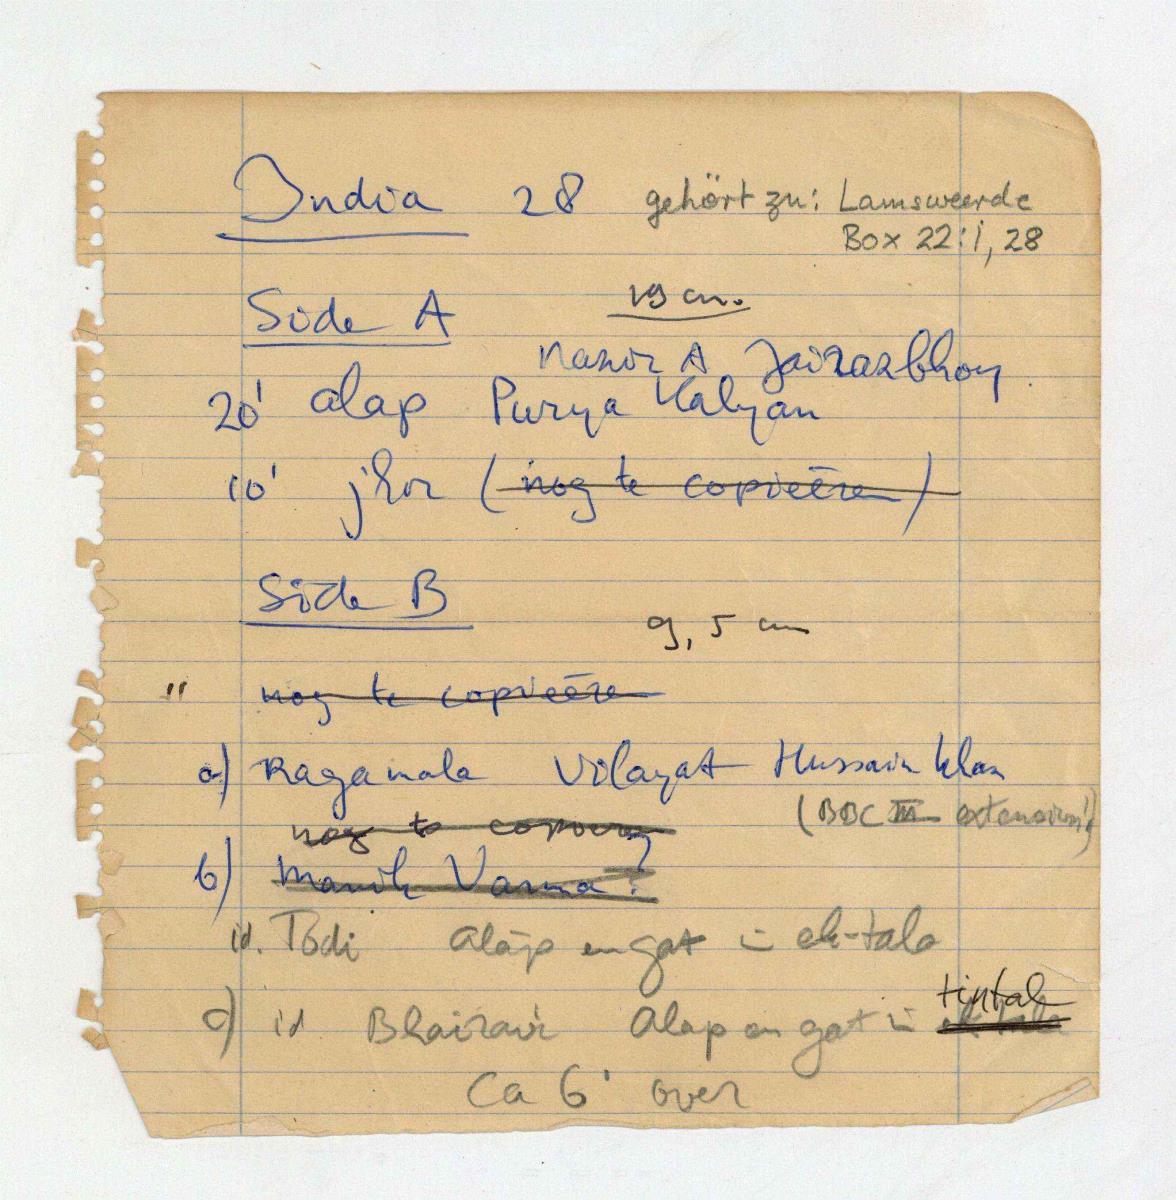 India 28 gehört zu: Lamsweerde
Box 22:1, 28
Side A 19 cm.
Nazir A Jairazbhoy
20' alap Purya Kalyan
10' jhor (nog te copieëren)
Side B
9,5 cm
" nog te copieëren
a) Ragamala Vilayat Hussain Khan
(BBC III extension!)
nog te copieren
b) Manik Varma?
id. Tōdi Alāp en gat in ek-tala
tintal
c) id Bhairavi Alap en gat in ek-tala
Ca 6' over